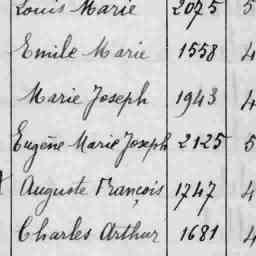 Louis Marie 2075 5
Emile Marie 1558 4
Marie Joseph 1943 4
Eugène Marie Joseph 2125 5
Auguste François 1747 4
Charles Arthur 1681 4